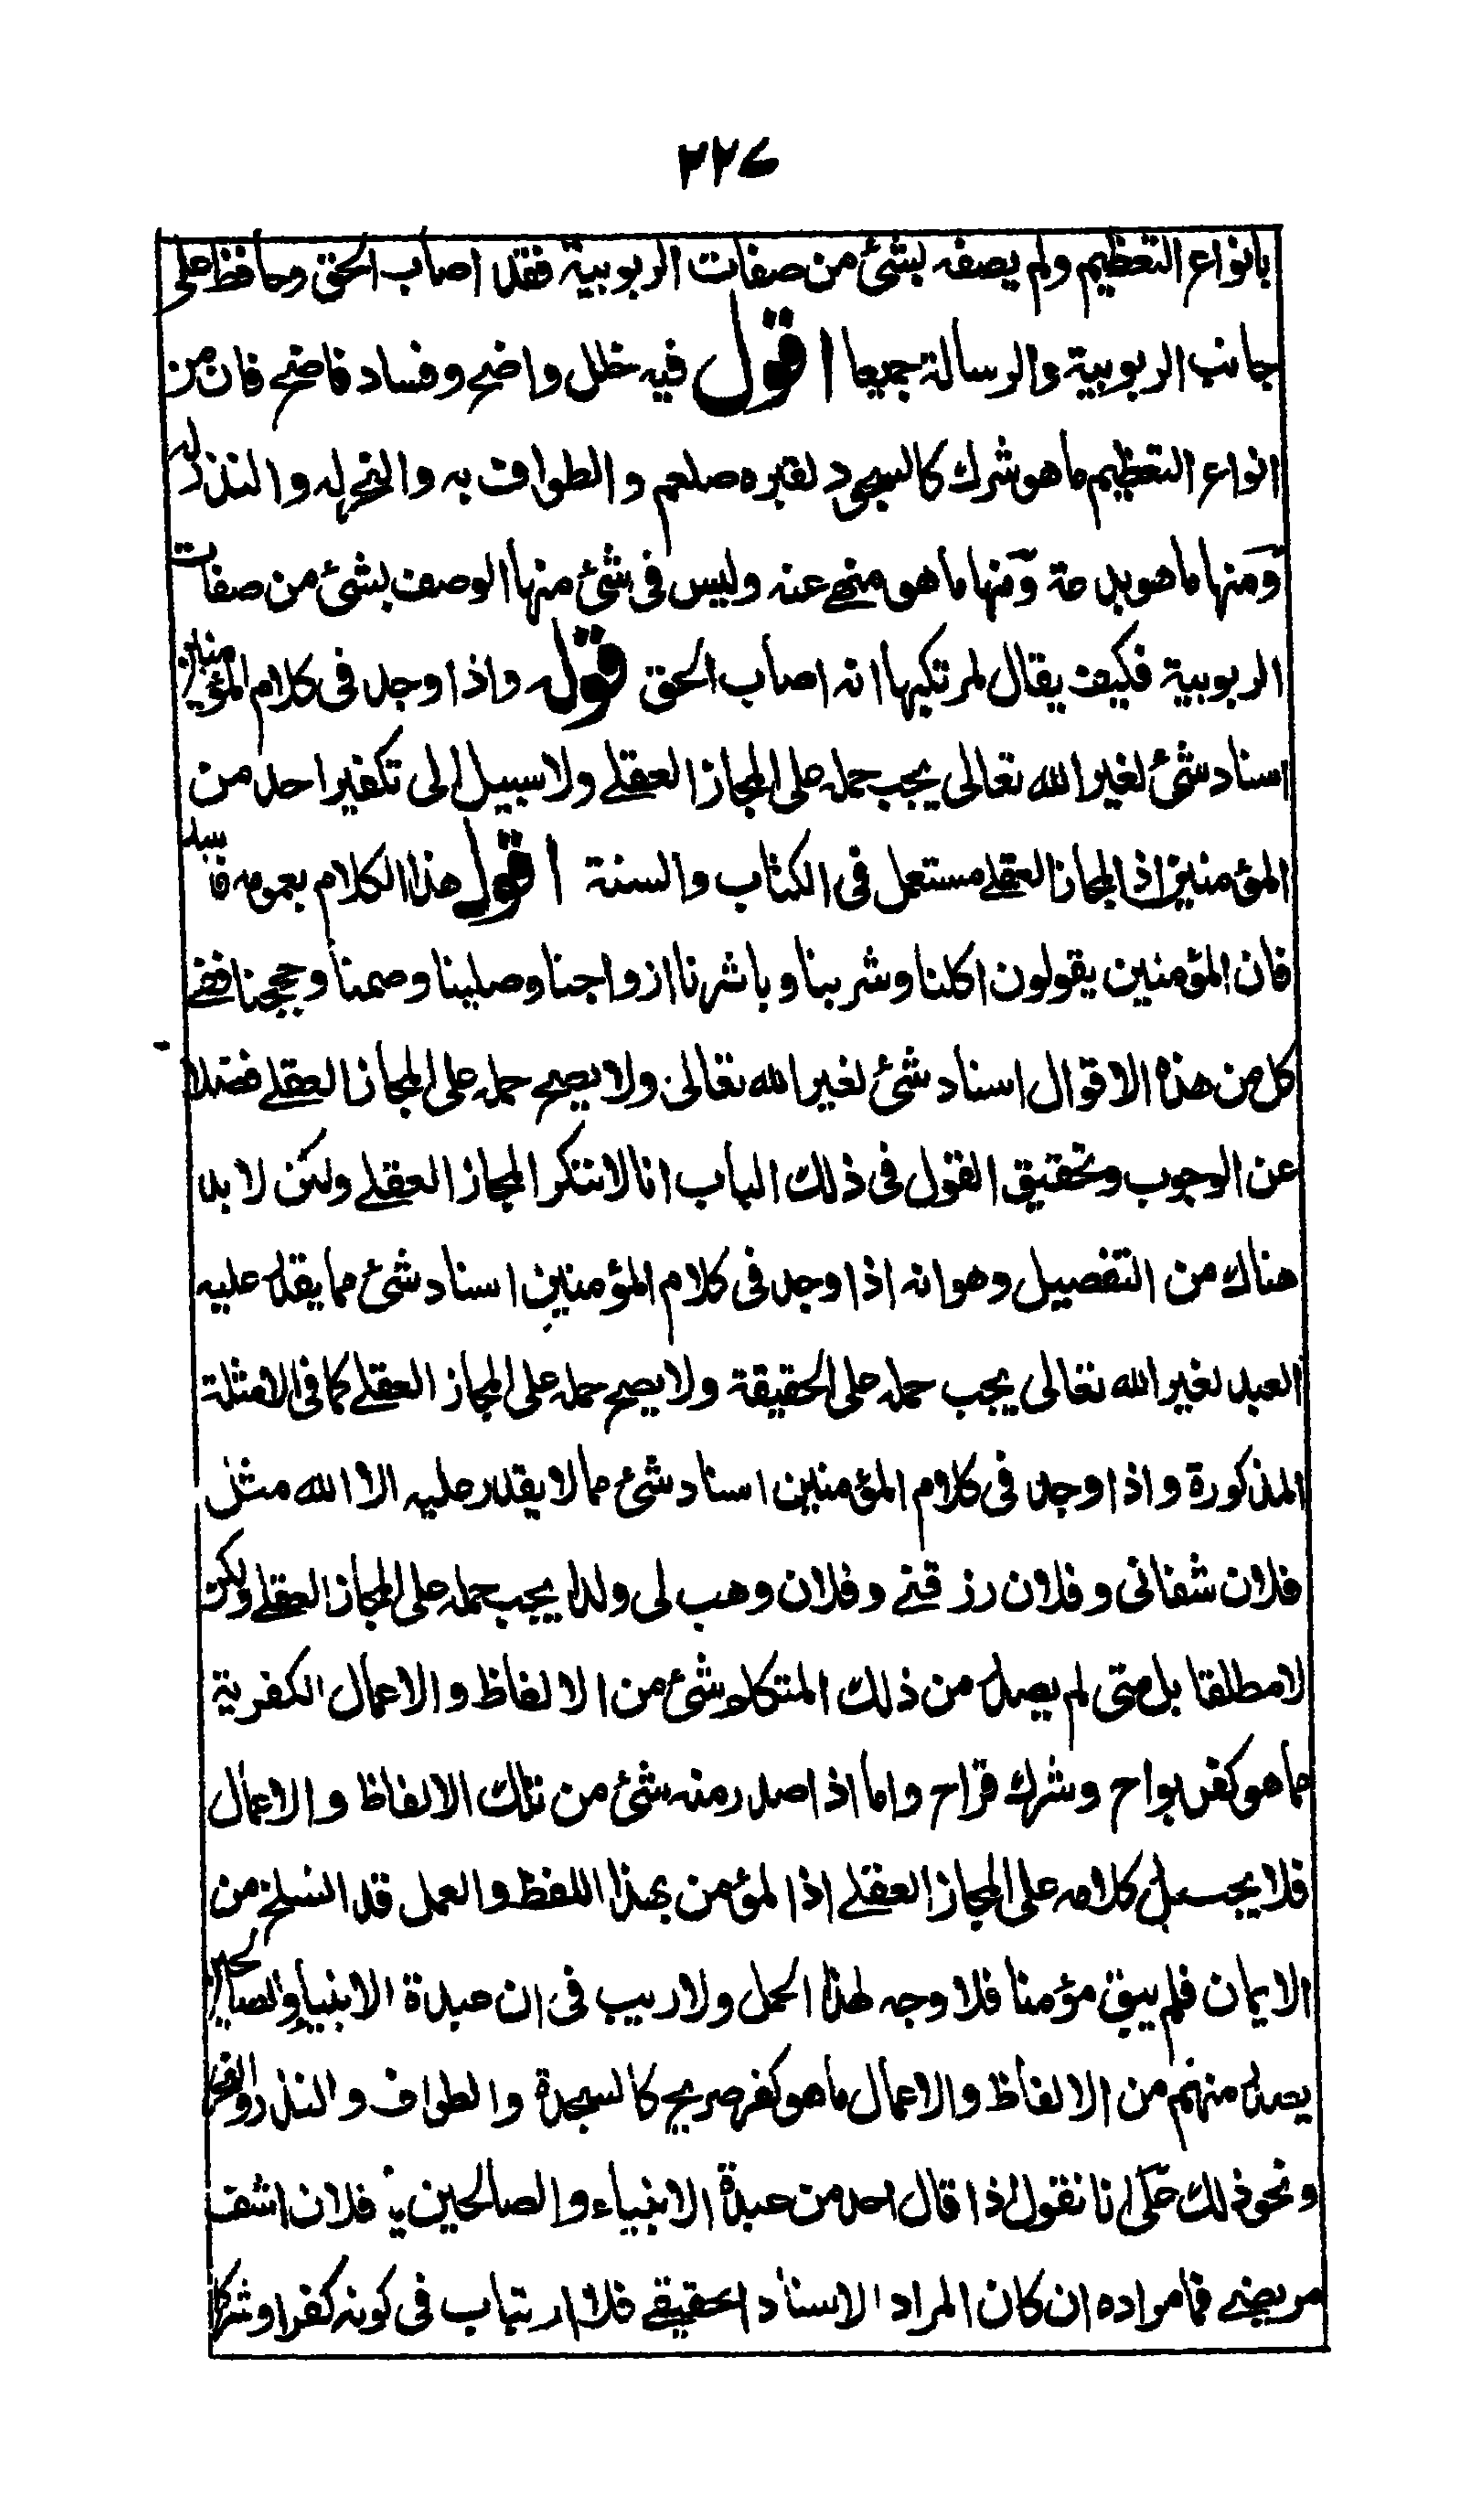 ٢٢٤
بانواع التعظيم ولم يصفه بشئ من صفات الربوبية فقد اصاب الحق وحافظ على
جانب الربوبية والرسالة جميعا اقول فيه خلل واضح وفساد فاضح فان من
انواع التعظيم ما هو شرك كالسجود لقبره صلعم والطواف به والنحر له والنذر له
ومنها ما هو بدعة ومنها ما هو منهى عنه وليس فى شئ منها الوصف بشئ من صفات
الربوبية فكيف يقال لمرتكبها انه اصاب الحق قوله واذا وجد فى كلام المؤمنين
اسناد شئ لغير الله تعالى يجب حمله على المجاز العقلے ولا سبيل الى تكفير احد من
المؤمنين اذ المجاز العقلے مستعمل فى الكتاب والسنة اقول هذا الكلام بعمومه فاسد
فان المؤمنين يقولون اكلنا وشربنا وباشرنا ازواجنا وصلينا وصمنا وحججنا ففے
كل من هذه الاقوال اسناد شئ لغير الله تعالى ولا يصح حمله على المجاز العقلے فضلا
عن الوجوب وتحقيق القول فى ذلك الباب انا لا ننكر المجاز العقلے ولكن لا بد
هناك من التفصيل وهو انه اذا وجد فى كلام المؤمنين اسناد شئ مما يقدر عليه
العبد لغير الله تعالى يجب حمله على الحقيقة ولا يصح حمله على المجاز العقلے كما فى الامثلة
المذكورة واذا وجد فى كلام المؤمنين اسناد شئ مما لا يقدر عليه الا الله مثل
فلان شفانى وفلان رزقنے وفلان وهب لى ولدا يجب حمله على المجاز العقلے ولكن
لا مطلقا بل متى لم يصدر من ذلك المتكلم شئ من الالفاظ والاعمال الكفرية
مما هو كفر بواح وشرك قراح واما اذا صدر منه شئ من تلك الالفاظ والاعمال
فلا يحمل كلامه على المجاز العقلے اذ المؤمن بهذا اللفظ والعمل قد انسلخ من
الايمان فلم يبق مؤمنا فلا وجه لهذا الحمل ولا ريب فى ان عبدة الانبياء والصالحين
يصدر منهم من الالفاظ والاعمال ما هو كفر صريح كالسجدة والطواف والنذر والنحر
ونحو ذلك على انا نقول اذا قال احد من عبدة الانبياء والصالحين يا فلان اشف
مريضے فما مراده ان كان المراد الاسناد الحقيقے فلا ارتياب فى كونه كفرا وشركا